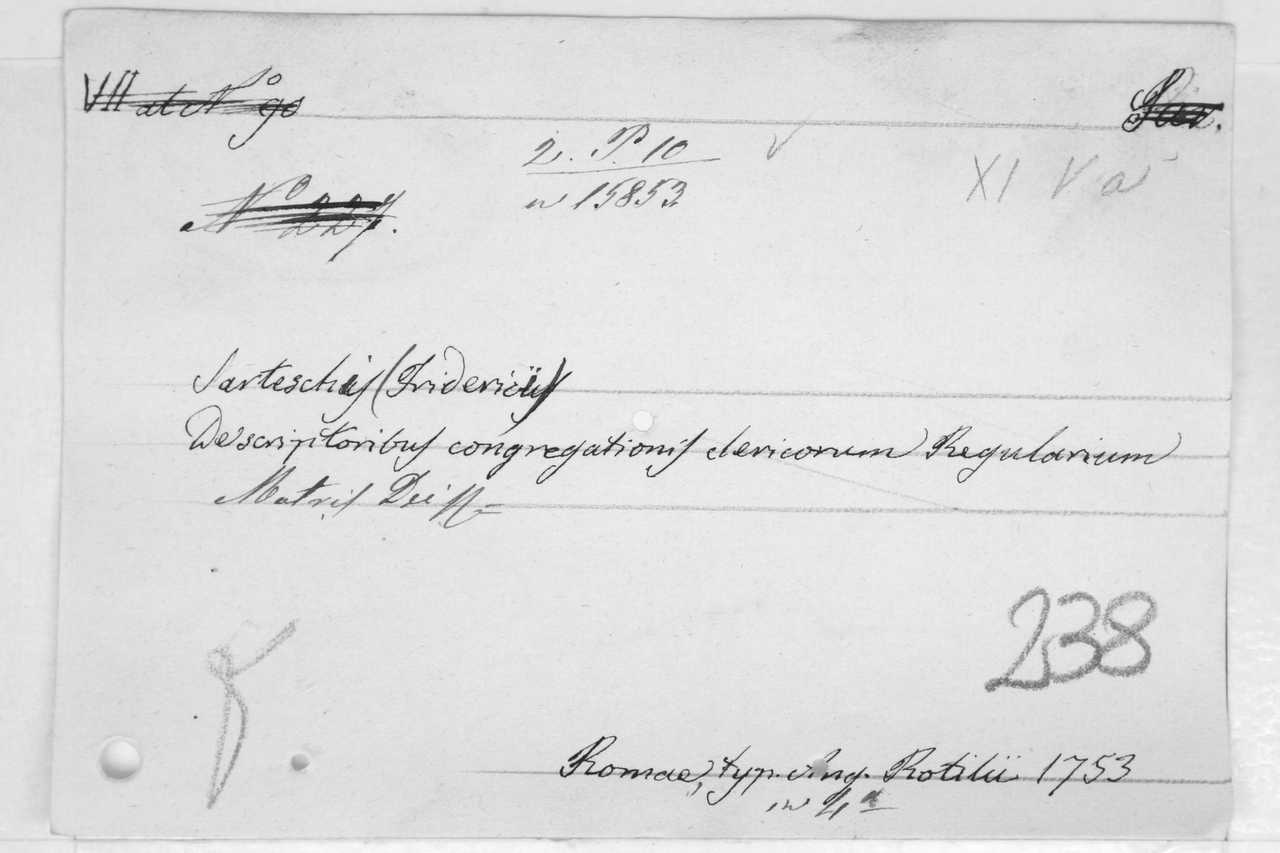 VII at Nº 90
2. P. 10
n 15853
XI V a
Nº 227.
Sarteschÿ (Fridericus)
De scriptoribus congregationis clericorum Regularium
Matris Dei
238
Romae, typ. Ang. Rotilii 1753
in 4º